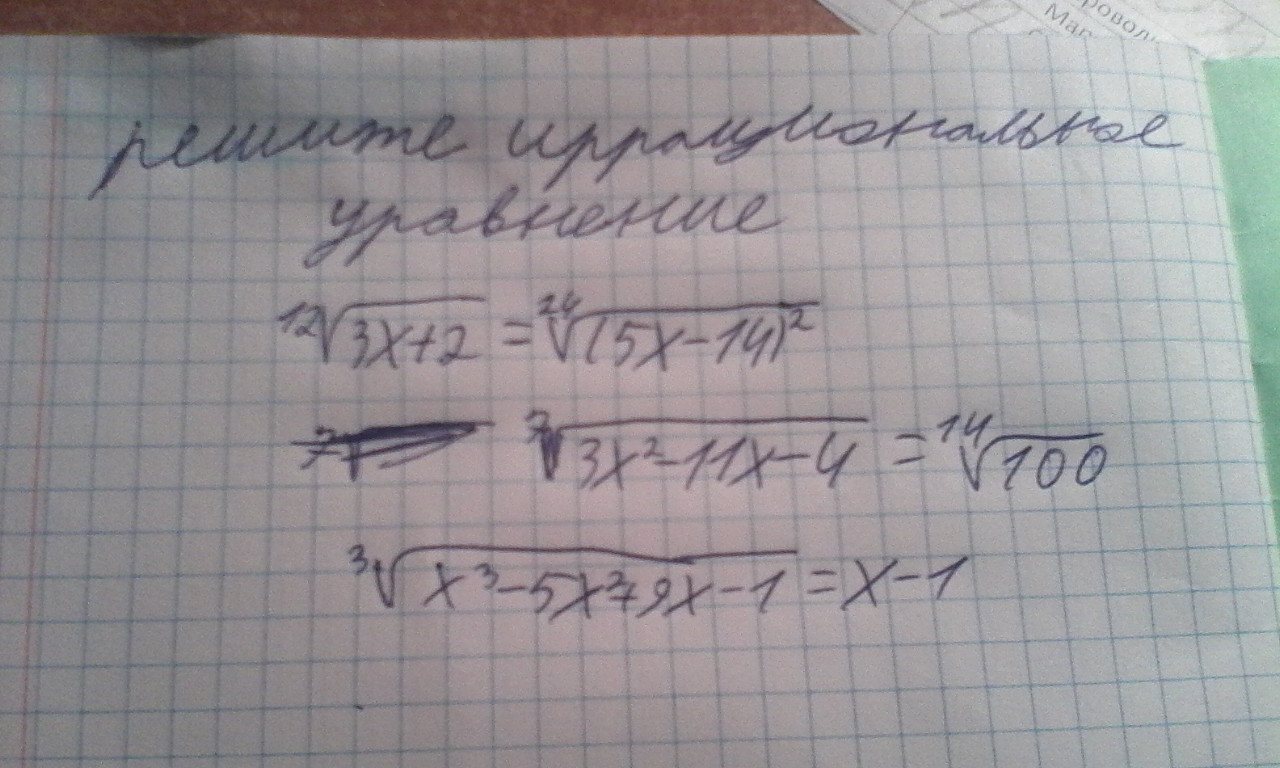 ровол
Мар
решите иррациональное
уравнение
¹²√(3x+2) = ²⁴√((5x-14)²)
⁷√(3x²-11x-4) = ¹⁴√100
³√(x³-5x²+9x-1) = x-1